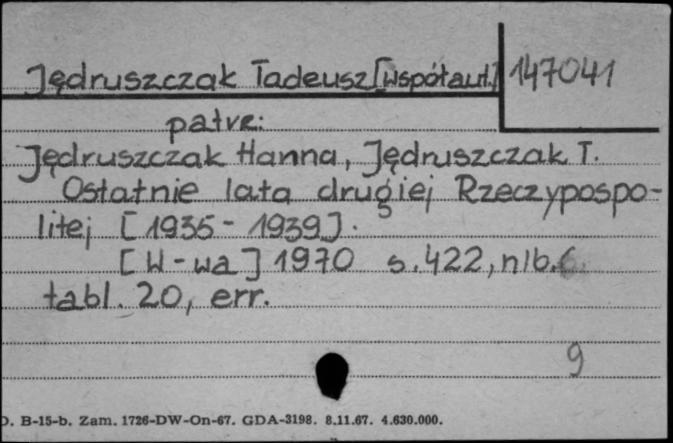 Jędruszczak Tadeusz [współaut.] 147041
patrz:
Jędruszczak Hanna, Jędruszczak T.
Ostatnie lata drugiej Rzeczypospo-
litej [1935-1939].
[W-wa] 1970 s. 422, nlb. 6.
tabl. 20, err.
9
D. B-15-b. Zam. 1726-DW-On-67. GDA-3198. 8.11.67. 4.630.000.